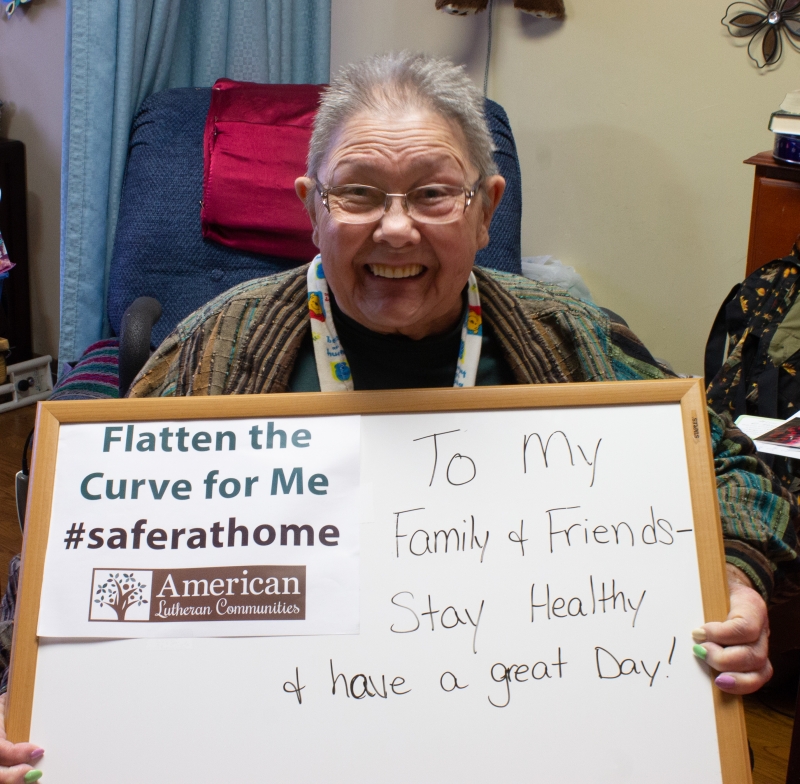 Flatten the
Curve for Me
#saferathome
American
Lutheran Communities
To My
Family & Friends-
Stay Healthy
& have a great Day!